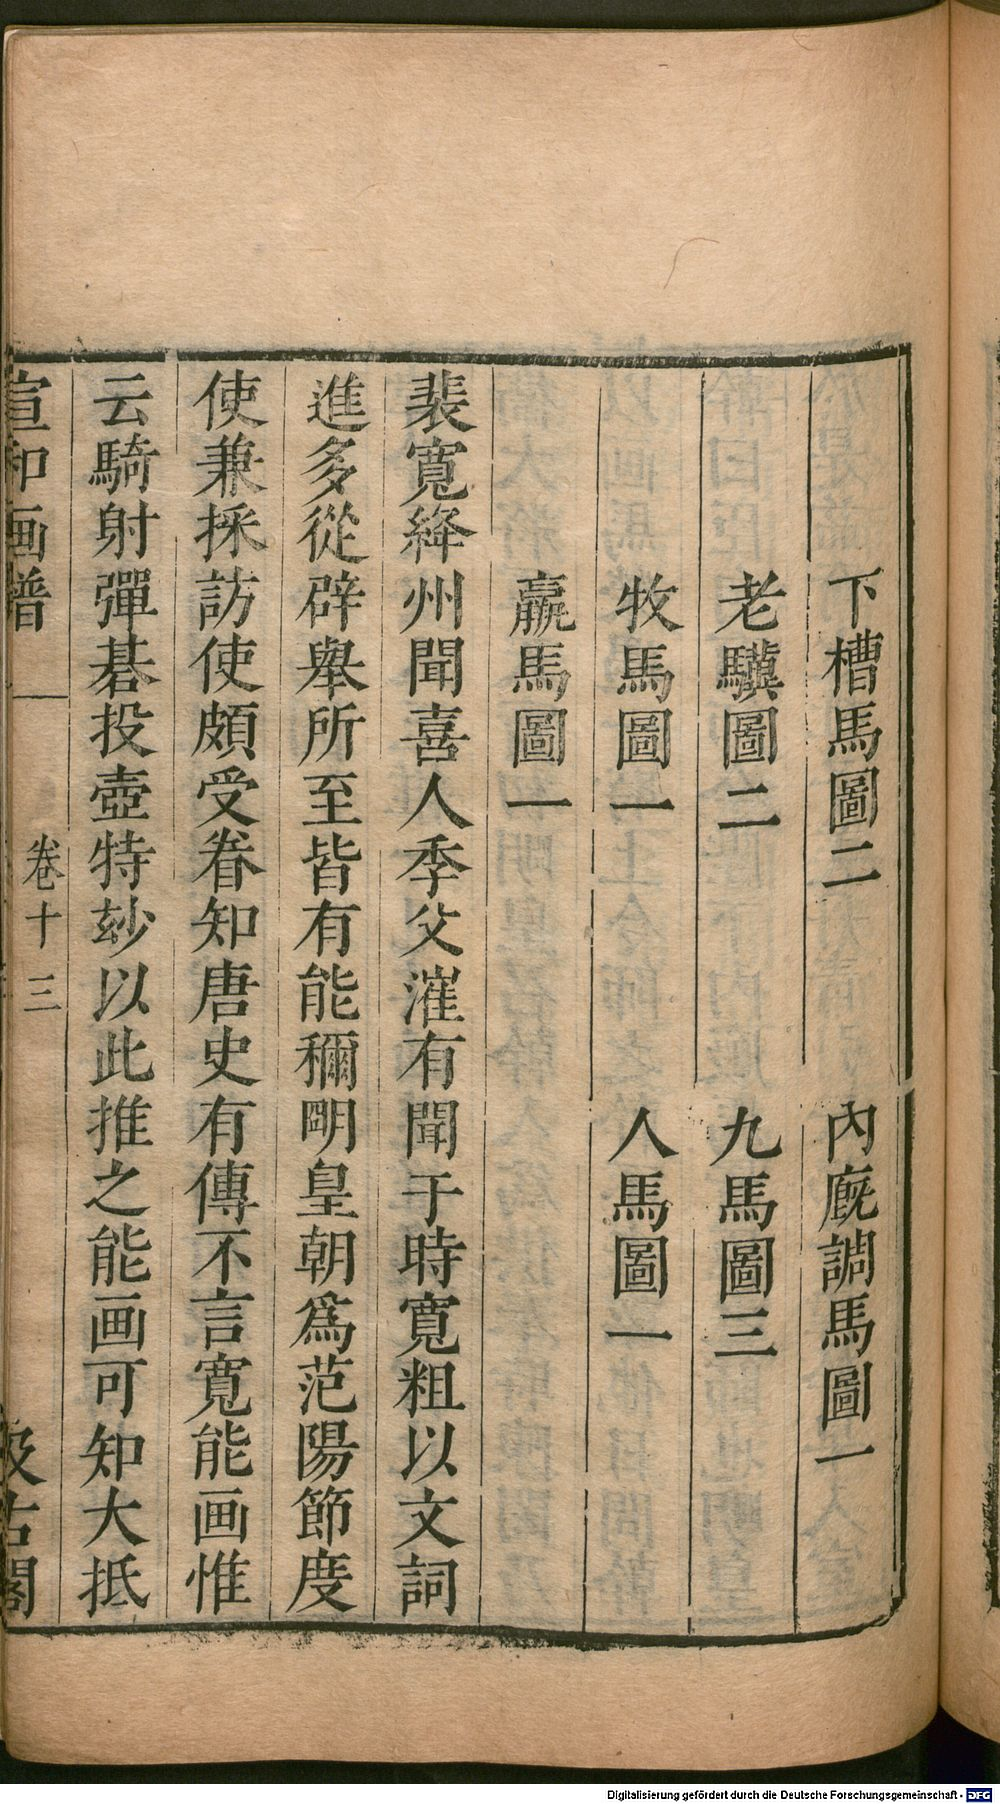 下槽馬圖二　內廐調馬圖一
老驥圖二　九馬圖三
牧馬圖一　人馬圖一
羸馬圖一
裴寬絳州聞喜人季父漼有聞于時寬粗以文詞
進多從辟舉所至皆有能稱明皇朝爲范陽節度
使兼採訪使頗受眷知唐史有傳不言寬能画惟
云騎射彈棊投壺特玅以此推之能画可知大抵
宣和画譜　卷十三　汲古閣
Digitalisierung gefördert durch die Deutsche Forschungsgemeinschaft - DFG